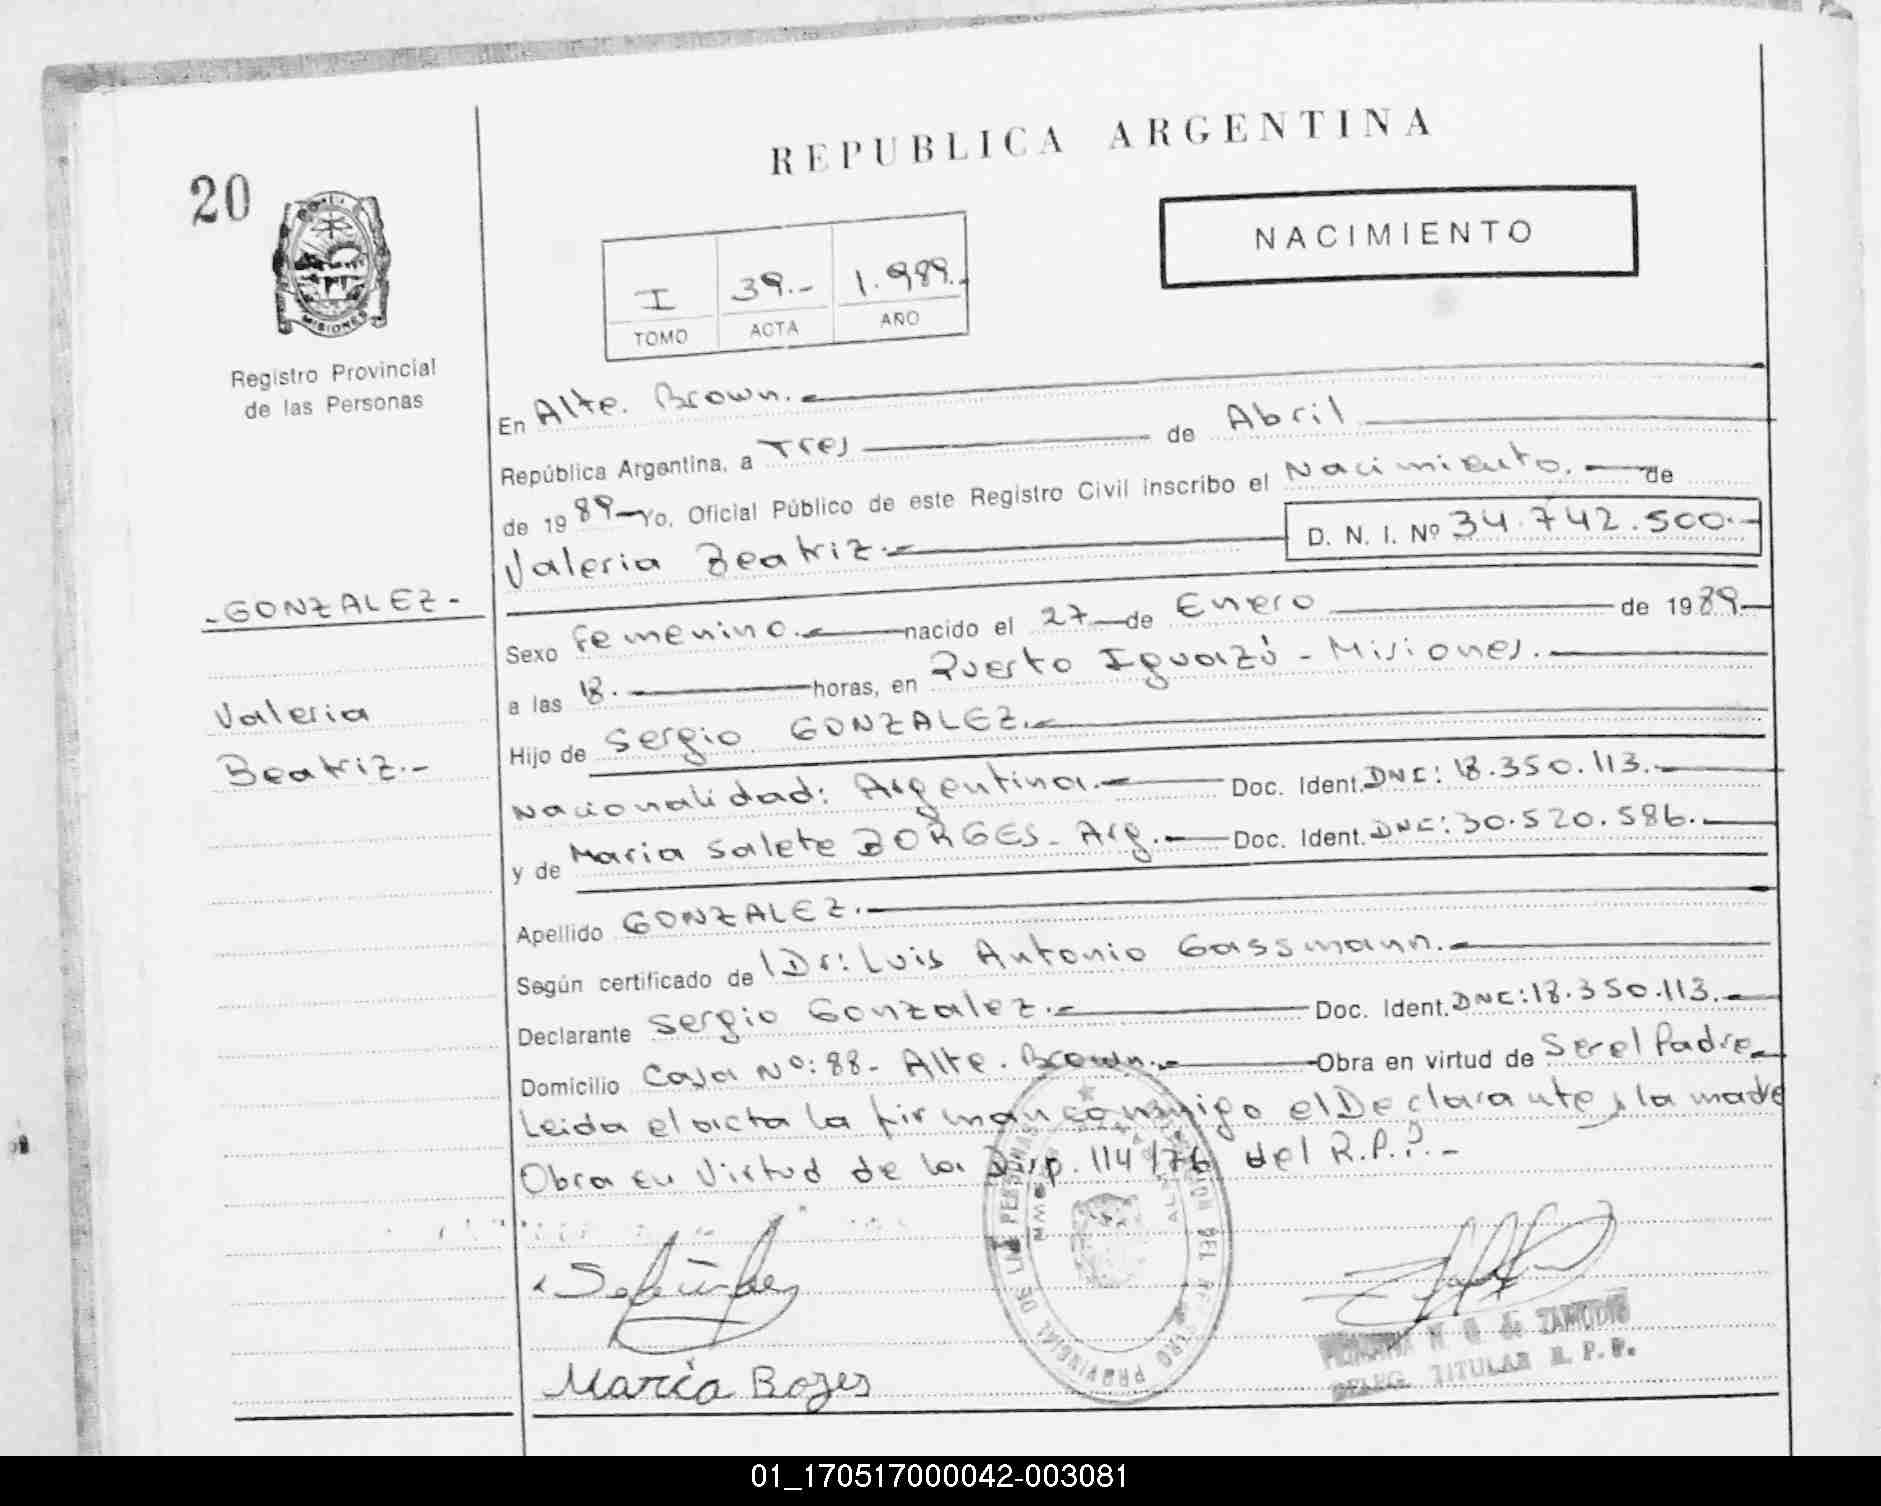 REPUBLICA ARGENTINA
20
NACIMIENTO
MISIONES
I 39.- 1.989.-
TOMO ACTA AÑO
Registro Provincial
de las Personas
En Alte. Brown.
República Argentina, a Tres de Abril
de 1989 Yo, Oficial Público de este Registro Civil inscribo el Nacimiento. de
Valeria Beatriz.- D. N. I. Nº 34.742.500.-
-GONZALEZ-
Valeria
Beatriz.-
Sexo Femenino. nacido el 27 de Enero de 1989
a las 18. horas, en Puerto Iguazú - Misiones.
Hijo de Sergio GONZALEZ.
Nacionalidad: Argentina. Doc. Ident. DNI: 18.350.113.
y de Maria Salete BORGES - Arg. Doc. Ident. DNI: 30.520.586.
Apellido GONZALEZ.
Según certificado de Dr: Luis Antonio Gassmann.
Declarante Sergio Gonzalez. Doc. Ident. DNI: 18.350.113.
Domicilio Casa Nº: 88- Alte. Brown. Obra en virtud de Ser el Padre
Leida el acta la firman conmigo el Declarante y la madre
Obra en Virtud de la Disp. 114/76 del R.P.P.-
REGISTRO PROVINCIAL DE LAS PERSONAS
María Boges
DE ZAMUDIO
DELEG. TITULAR R. P. P.
01_170517000042-003081